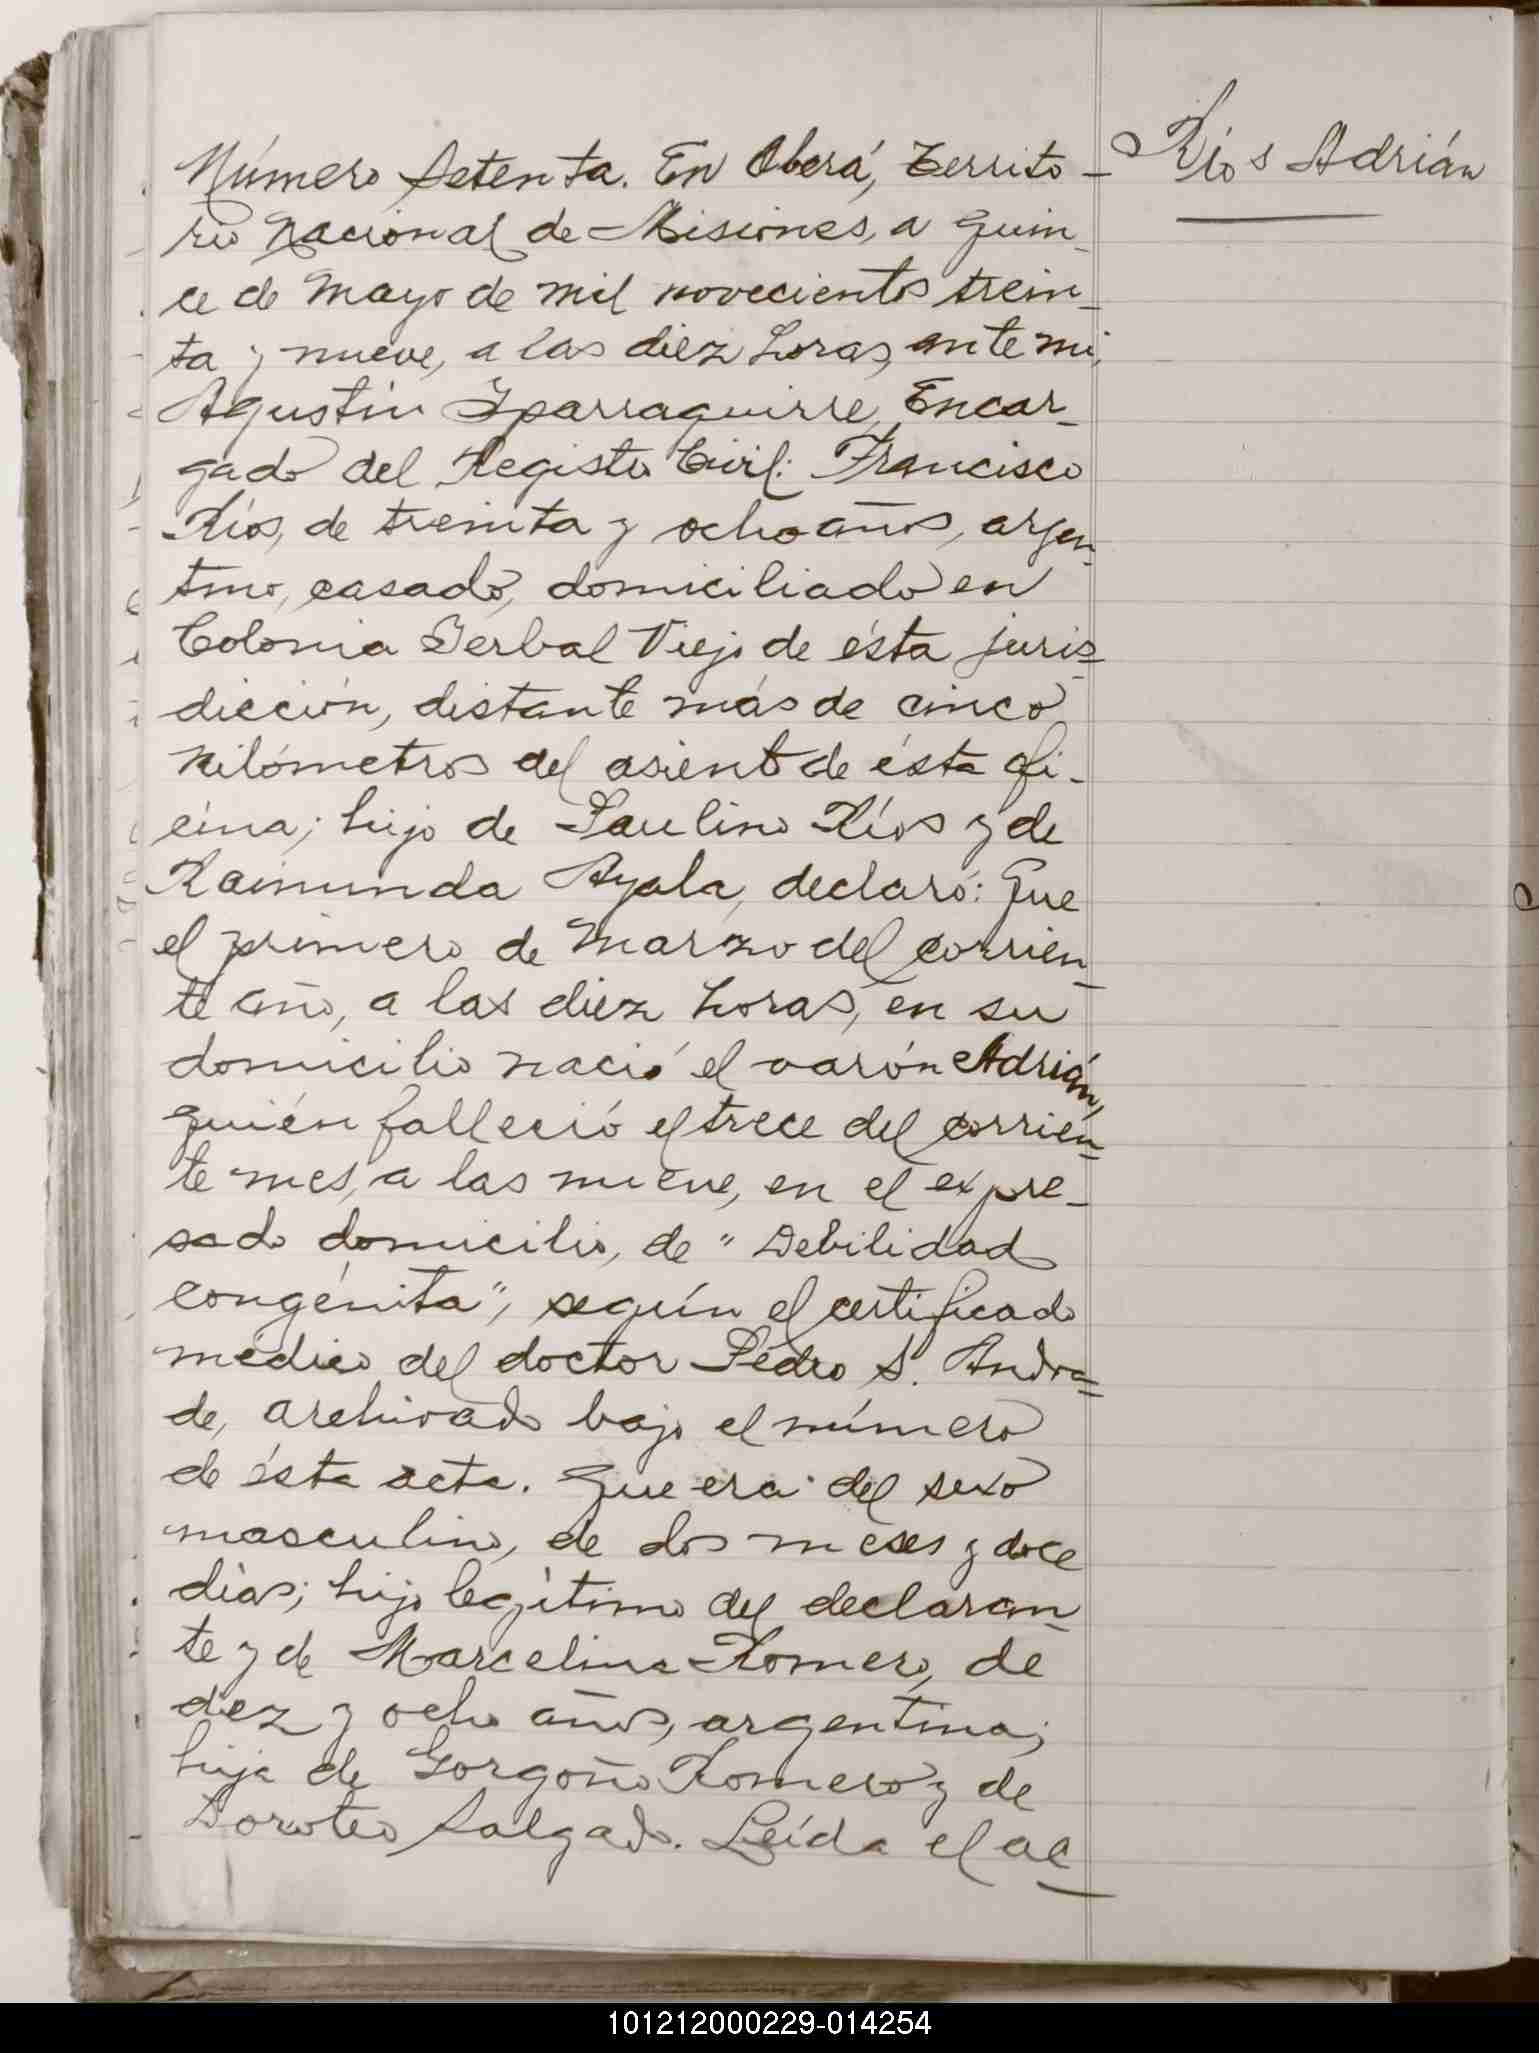 Número Setenta. En Oberá, Territo-
rio Nacional de Misiones, a quin-
ce de Mayo de mil novecientos trein-
ta y nueve, a las diez horas, ante mi,
Agustín Yparraguirre, Encar-
gado del Registro Civil: Francisco
Ríos, de treinta y ocho años, argen-
tino, casado, domiciliado en
Colonia Yerbal Viejo de ésta juris-
dicción, distante más de cinco
kilómetros del asiento de ésta ofi-
cina; hijo de Paulino Ríos y de
Raimunda Ayala, declaró: Que
el primero de Marzo del corrien-
te año, a las diez horas, en su
domicilio nació el varón Adrián,
quién falleció el trece del corrien-
te mes, a las nueve, en el expre-
sado domicilio, de "Debilidad
congénita", según el certificado
médico del doctor Pedro S. Andra-
de, archivado bajo el número
de ésta acta. Que era del sexo
masculino, de dos meses y doce
días; hijo legítimo del declaran-
te y de Marcelina Romero, de
diez y ocho años, argentina;
hija de Gorgoño Romero y de
Doroteo Salgado. Leída el ac-
Ríos Adrián
101212000229-014254